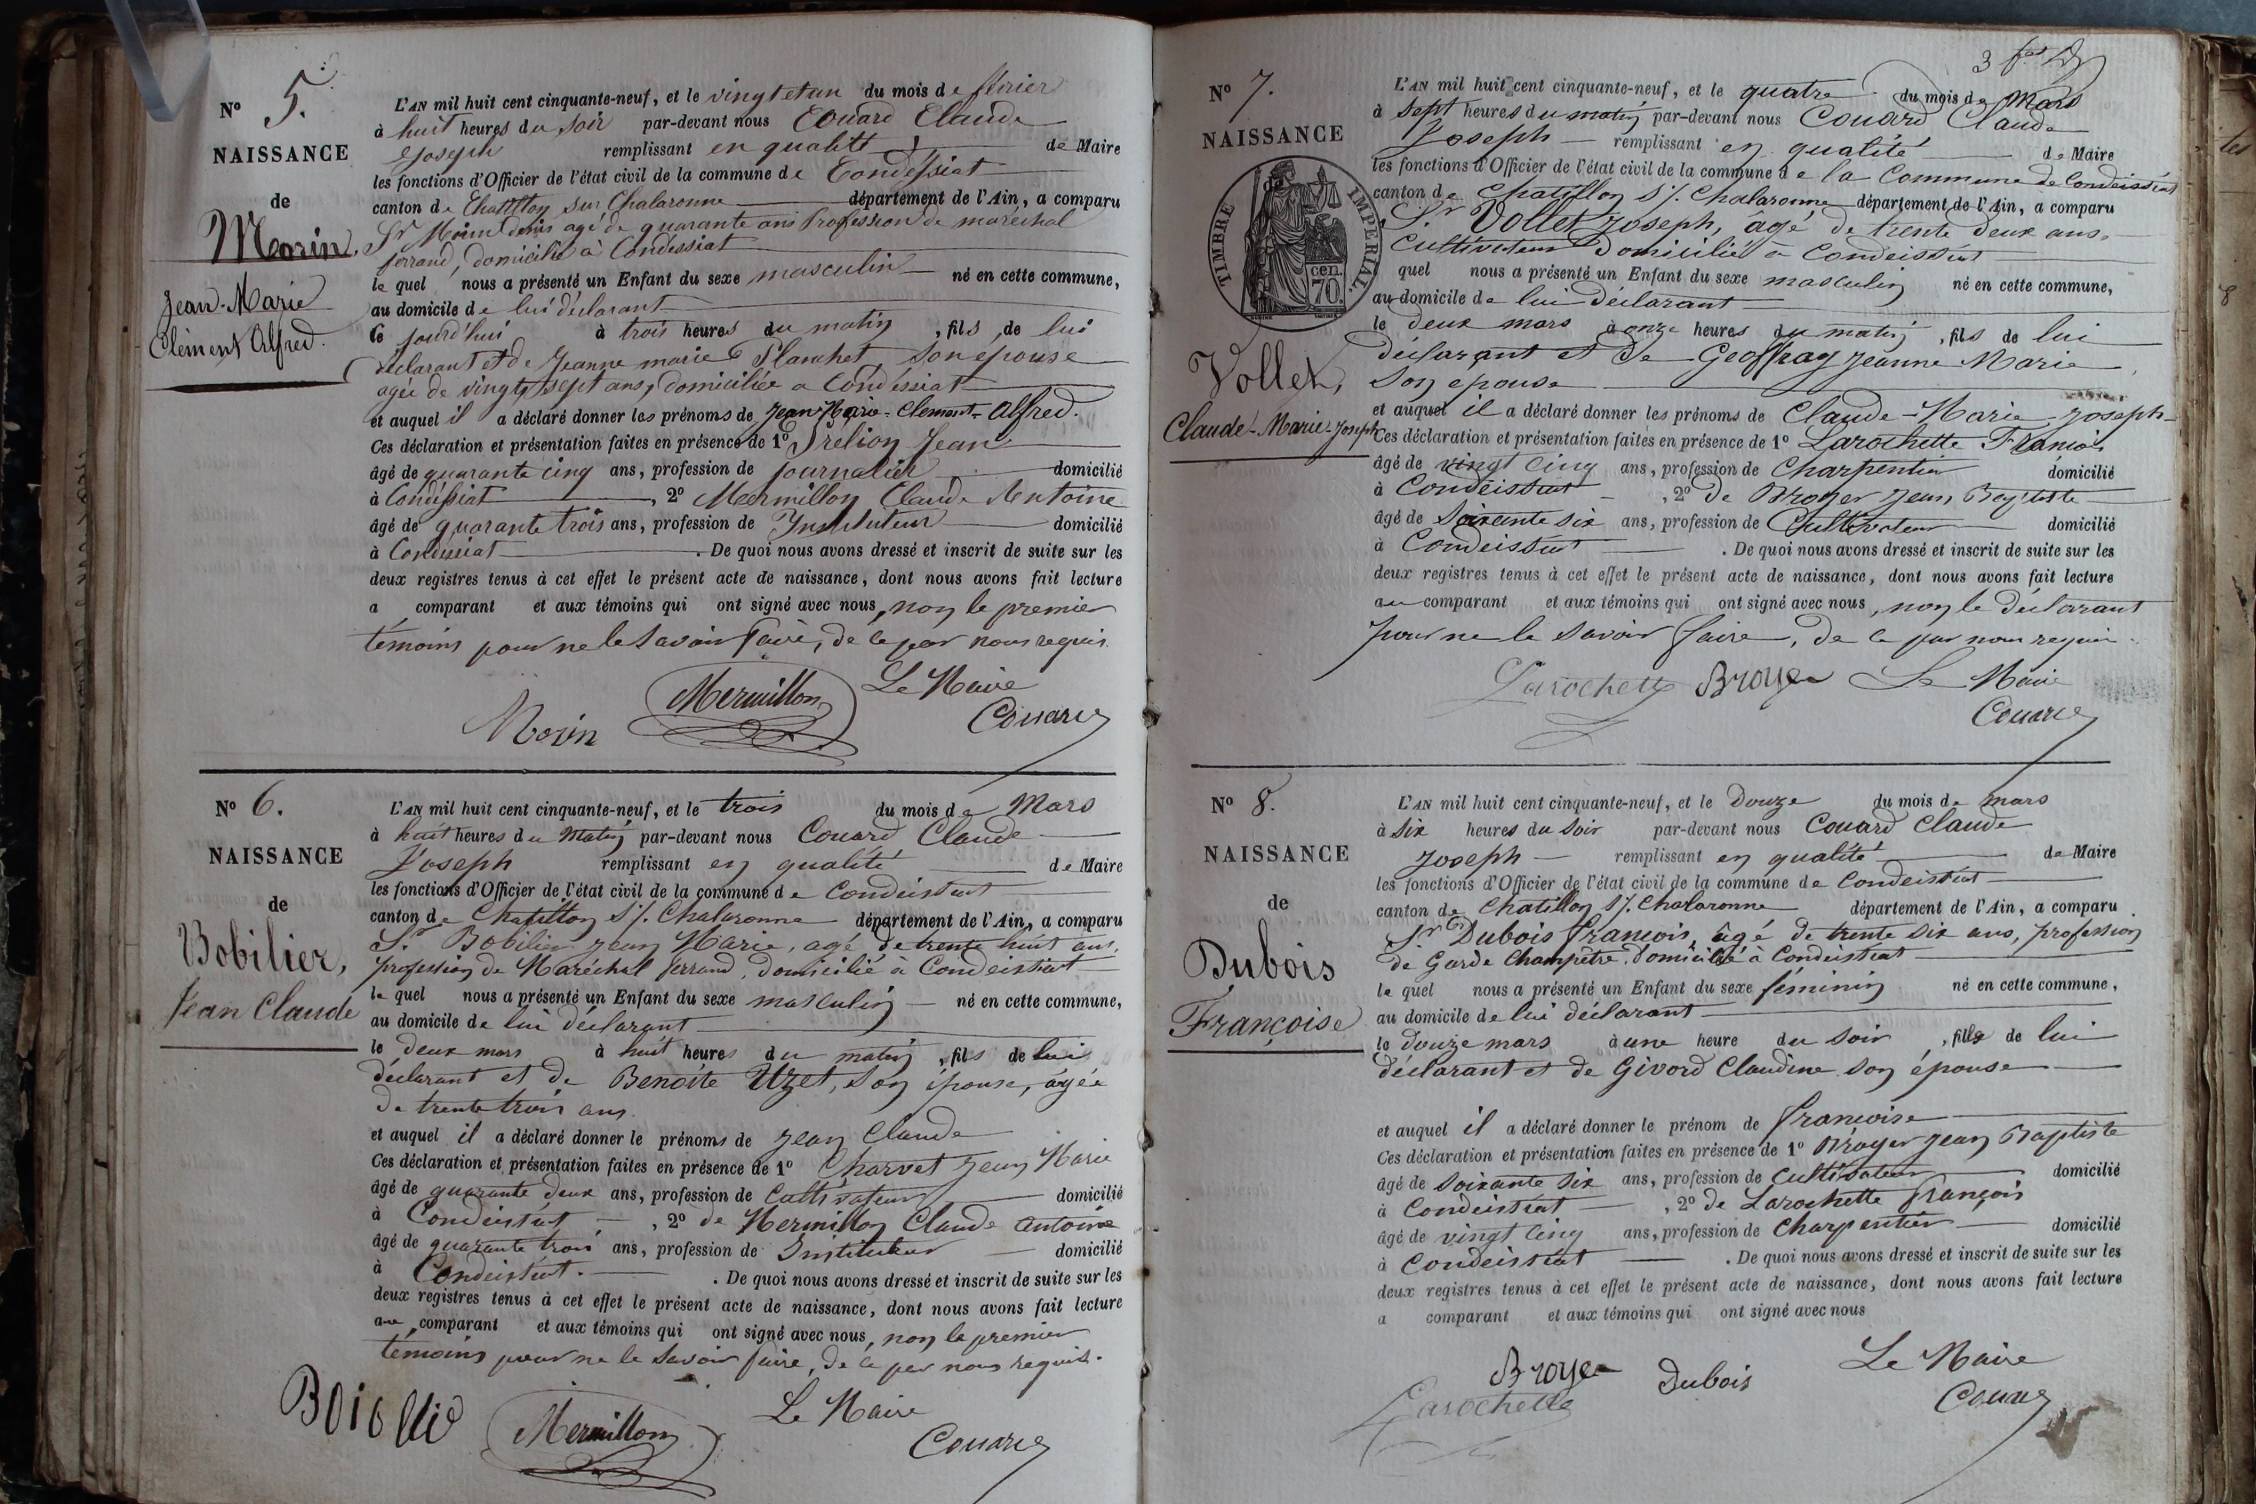 N° 5.
NAISSANCE
de
Morin,
Jean-Marie
Clément Alfred.
L'AN mil huit cent cinquante-neuf, et le vingt et un du mois de février
à huit heures du soir par-devant nous Couard Claude
Joseph remplissant en qualité de Maire
les fonctions d'Officier de l'état civil de la commune de Condeissiat
canton de Chatillon sur Chalaronne département de l'Ain, a comparu
Sr Morin denis agé de quarante ans Profession de maréchal
ferrand, domicilié à Condessiat
le quel nous a présenté un Enfant du sexe masculin né en cette commune,
au domicile de lui déclarant
ce jourd'hui à trois heures du matin, fils de lui
déclarant et de Jeanne marie Planchet, son épouse
agée de vingt sept ans, domiciliée a Condéssiat
et auquel il a déclaré donner les prénoms de Jean Marie-Clement-Alfred.
Ces déclaration et présentation faites en présence de 1° Prelion Jean
âgé de quarante cinq ans, profession de journalier domicilié
à Condéssiat, 2° Mermillon Claude Antoine
âgé de quarante trois ans, profession de Instituteur domicilié
à Condessiat. De quoi nous avons dressé et inscrit de suite sur les
deux registres tenus à cet effet le présent acte de naissance, dont nous avons fait lecture
a comparant et aux témoins qui ont signé avec nous, non le premier
témoins pour ne le savoir faire, de ce par nous requis.
Morin Mermillon Le Maire
Couard
N° 6.
NAISSANCE
de
Bobilier,
Jean Claude
L'AN mil huit cent cinquante-neuf, et le trois du mois de Mars
à huit heures du Matin par-devant nous Couard Claude
Joseph remplissant en qualité de Maire
les fonctions d'Officier de l'état civil de la commune de Condeistiat
canton de Chatillon s/. Chalaronne département de l'Ain, a comparu
Sr. Bobilier Jean Marie, agé de trente huit ans,
profession de Maréchal ferrand, domicilié à Condeistiat
le quel nous a présenté un Enfant du sexe masculin né en cette commune,
au domicile de lui déclarant
le deux mars à huit heures du matin, fils de lui
déclarant et de Benoite Uzet, son épouse, âgée
de trente trois ans
et auquel il a déclaré donner le prénoms de Jean Claude
Ces déclaration et présentation faites en présence de 1° Charvet Jean Marie
âgé de quarante deux ans, profession de Cultivateur domicilié
à Condeistiat, 2° de Mermillon Claude Antoine
âgé de quarante trois ans, profession de Instituteur domicilié
à Condeistiat. De quoi nous avons dressé et inscrit de suite sur les
deux registres tenus à cet effet le présent acte de naissance, dont nous avons fait lecture
au comparant et aux témoins qui ont signé avec nous, non le premier
témoins pour ne le savoir faire, de ce par nous requis.
Mermillon Le Maire
Couard
3
N° 7.
NAISSANCE
TIMBRE IMPERIAL.
70 cen.
Vollet,
Claude-Marie-Joseph
L'AN mil huit cent cinquante-neuf, et le quatre du mois de Mars
à sept heures du matin par-devant nous Couard Claude
Joseph remplissant en qualité de Maire
les fonctions d'Officier de l'état civil de la commune de la Commune de Condeissiat
canton de Chatillon s/. Chalaronne département de l'Ain, a comparu
Sr Vollet Joseph, âgé de trente deux ans,
Cultivateur Domicilié à Condeistiat
quel nous a présenté un Enfant du sexe masculin né en cette commune,
au domicile de lui déclarant
le deux mars à onze heures du matin, fils de lui
déclarant et de Geoffray Jeanne Marie
son epouse
et auquel il a déclaré donner les prénoms de Claude-Marie Joseph
Ces déclaration et présentation faites en présence de 1° Larochette François
âgé de vingt cinq ans, profession de Charpentier domicilié
à Condeistiat, 2° de Broyer Jean Baptiste
âgé de soixante six ans, profession de Cultivateur domicilié
à Condeistiat. De quoi nous avons dressé et inscrit de suite sur les
deux registres tenus à cet effet le présent acte de naissance, dont nous avons fait lecture
au comparant et aux témoins qui ont signé avec nous, non le déclarant
pour ne le savoir faire, de ce par nous requis.
Larochette Broyer Le Maire
Couard
N° 8.
NAISSANCE
de
Dubois
Françoise
L'AN mil huit cent cinquante-neuf, et le Douze du mois de mars
à six heures du soir par-devant nous Couard Claude
Joseph remplissant en qualité de Maire
les fonctions d'Officier de l'état civil de la commune de Condeistiat
canton de Chatillon s/. Chalaronne département de l'Ain, a comparu
Sr Dubois francois, âgé de trente six ans, profession
de Garde Champêtre, domicilié à Condeistiat
le quel nous a présenté un Enfant du sexe féminin né en cette commune,
au domicile de lui déclarant
le douze mars à une heure du soir, fille de lui
déclarant et de Givord Claudine son épouse
et auquel il a déclaré donner le prénom de francoise
Ces déclaration et présentation faites en présence de 1° Broyer Jean Baptiste
âgé de soixante six ans, profession de Cultivateur domicilié
à Condeistiat, 2° de Larochette françois
âgé de vingt cinq ans, profession de Charpentier domicilié
à Condeistiat. De quoi nous avons dressé et inscrit de suite sur les
deux registres tenus à cet effet le présent acte de naissance, dont nous avons fait lecture
a comparant et aux témoins qui ont signé avec nous
Broyer Dubois Le Maire
Larochette Couard